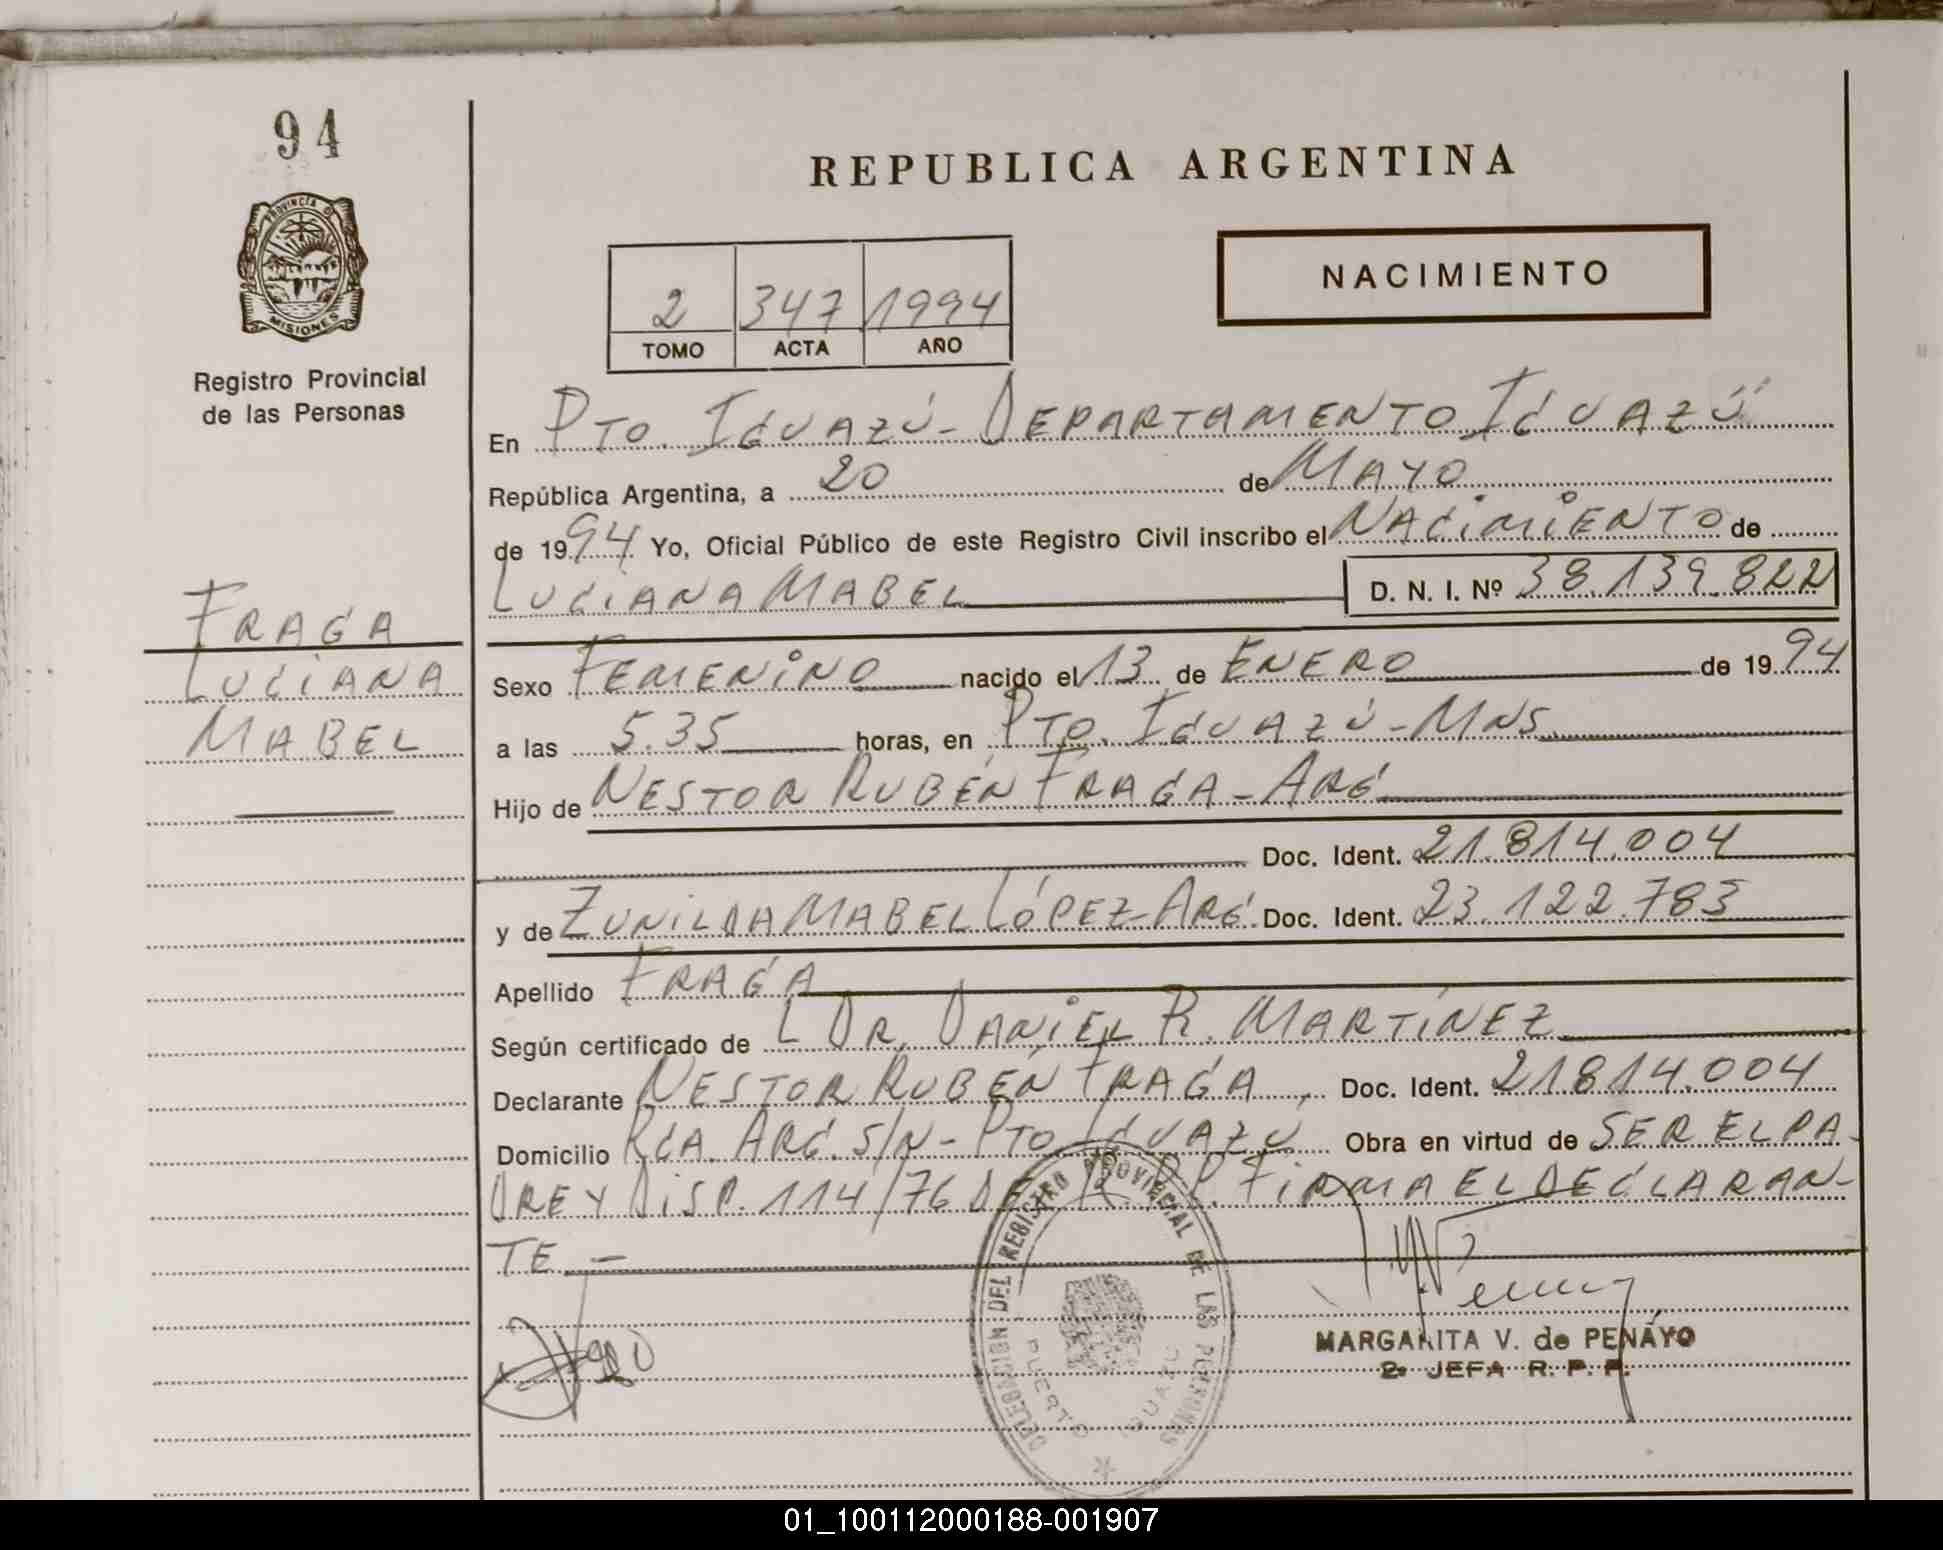 94
PROVINCIA DE
MISIONES
Registro Provincial
de las Personas
REPUBLICA ARGENTINA
NACIMIENTO
2 347 1994
TOMO ACTA AÑO
En PTO. IGUAZÚ - DEPARTAMENTO IGUAZÚ
República Argentina, a 20 de MAYO
de 1994 Yo, Oficial Público de este Registro Civil inscribo el NACIMIENTO de
LUCIANA MABEL D. N. I. Nº 38.139.822
FRAGA
LUCIANA
MABEL
Sexo FEMENINO nacido el 13 de ENERO de 1994
a las 5.35 horas, en PTO. IGUAZÚ - MNS.
Hijo de NESTOR RUBÉN FRAGA - ARG
Doc. Ident. 21.814.004
y de ZUNILDA MABEL LÓPEZ - ARG. Doc. Ident. 23.122.783
Apellido FRAGA
Según certificado de L DR. DANIEL R. MARTÍNEZ
Declarante NESTOR RUBÉN FRAGA, Doc. Ident. 21814.004
Domicilio RCA. ARG. S/N - PTO IGUAZÚ Obra en virtud de SER EL PA-
DRE Y DISP. 114/76 DE R.P.P. FIRMA EL DECLARAN-
TE -
DELEGACION DEL REGISTRO PROVINCIAL DE LAS PERSONAS
PUERTO IGUAZU
MARGARITA V. de PENAYO
2ª JEFA R. P. P.
01_100112000188-001907